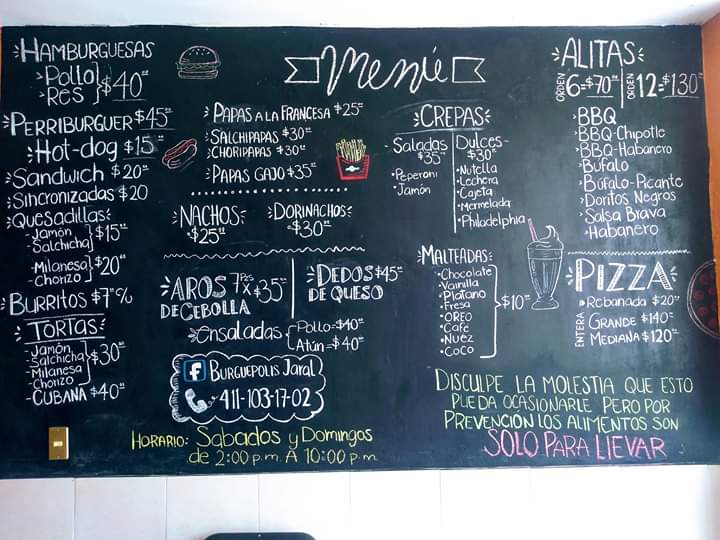 Menú
HAMBURGUESAS
Pollo
Res
$40.00
PERRIBURGUER $45.00
Hot-dog $15.00
Sandwich $20.00
Sincronizadas $20
Quesadillas
- Jamón
- Salchicha
$15.00
- Milanesa
- Chorizo
$20.00
BURRITOS $7.00 c/u
TORTAS
- Jamón
- Salchicha
- Milanesa
- Chorizo
$30.00
- CUBANA $40.00
PAPAS A LA FRANCESA $25.00
SALCHIPAPAS $30.00
CHORIPAPAS $30.00
PAPAS GAJO $35.00
NACHOS
$25.00
DORINACHOS
$30.00
AROS 7 Pzs X $35.00
DE CEBOLLA
DEDOS $45.00
DE QUESO
Ensaladas
Pollo=$40.00
Atún=$40.00
BURGUEPOLIS Jaral
411-103-17-02
HORARIO: Sabados y Domingos
de 2:00 p.m. A 10:00 p.m
CREPAS
- Saladas
$35.00
• Peperoni
• Jamón
Dulces-
$30.00
• Nutella
• Lechera
• Cajeta
• Mermelada
• Philadelphia
MALTEADAS
• Chocolate
• Vainilla
• Platano
• Fresa
• OREO
• Café
• Nuez
• Coco
$10.00
ALITAS
ORDEN 6=$70.00
ORDEN 12=$130.00
BBQ
BBQ-Chipotle
BBQ-Habanero
Búfalo
Búfalo-Picante
Doritos Negros
Salsa Brava
Habanero
PIZZA
Rebanada $20.00
ENTERA
GRANDE $140.00
MEDIANA $120.00
DISCULPE LA MOLESTIA QUE ESTO
PUEDA OCASIONARLE PERO POR
PREVENCIÓN LOS ALIMENTOS SON
SOLO PARA LLEVAR